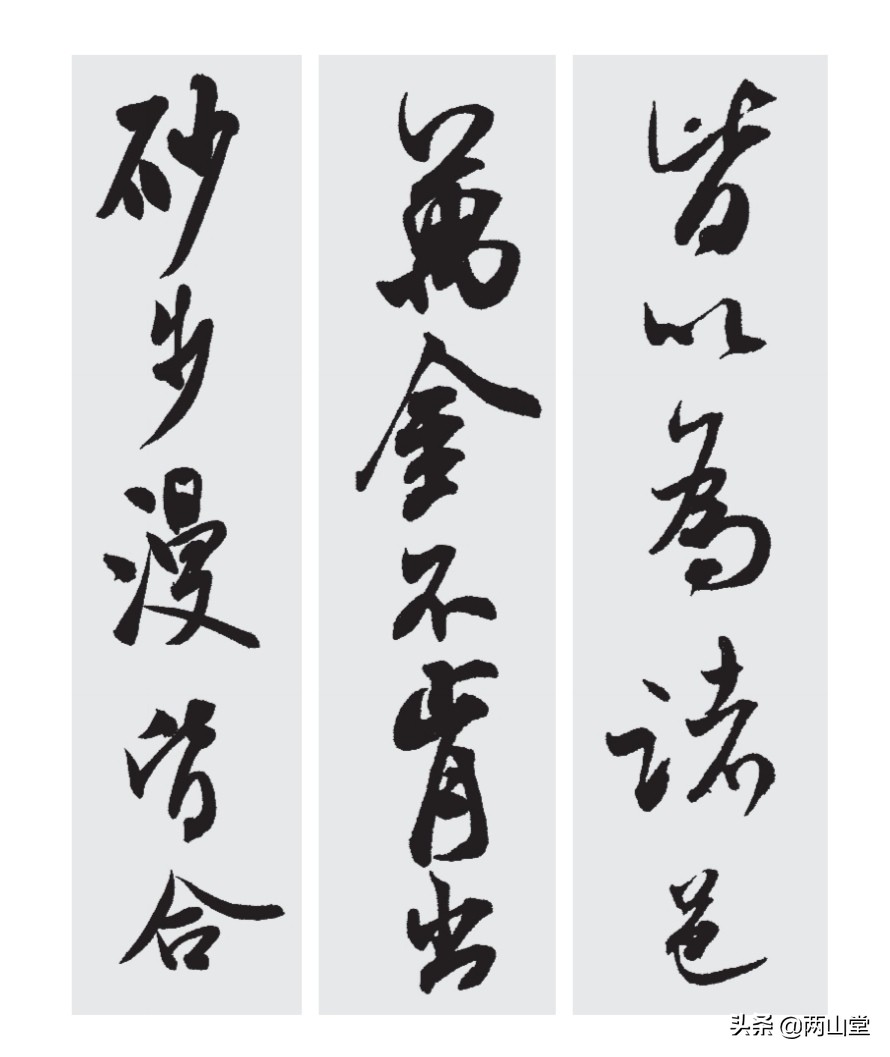 皆以為諸邑
萬金不肯出
砂步漫皆合
头条 @两山堂